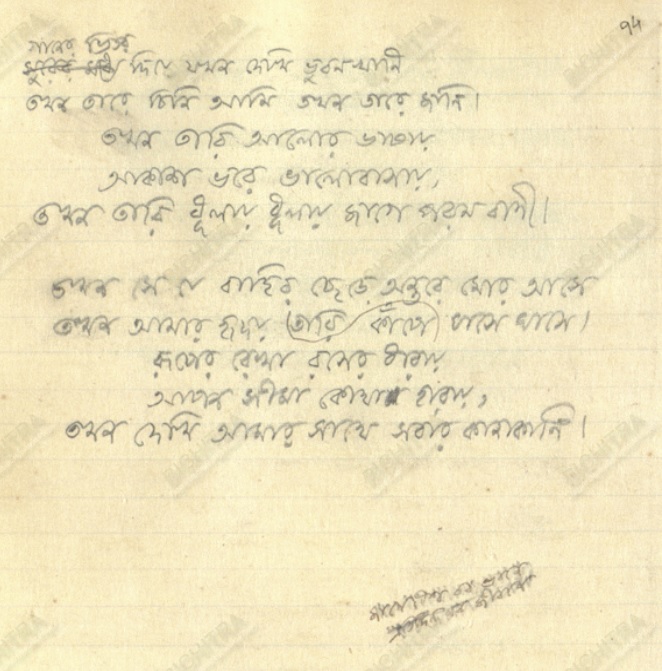 ৭৮
গানের ভিতর
সুরের মধ্য দিয়ে যখন দেখি ভুবনখানি
তখন তারে চিনি আমি তখন তারে জানি।
তখন তারি আলোর ভাষায়
আকাশ ভরে ভালোবাসায়,
তখন তারি ধূলায় ধূলায় জাগে পরম বাণী।
তখন সে যে বাহির ছেড়ে অন্তরে মোর আসে
তখন আমার হৃদয় তারি কাঁপে ঘাসে ঘাসে।
রূপের রেখা রসের ধারায়
আপন সীমা কোথায় হারায়,
তখন দেখি আমার সাথে সবার কানাকানি।
BICHITRA